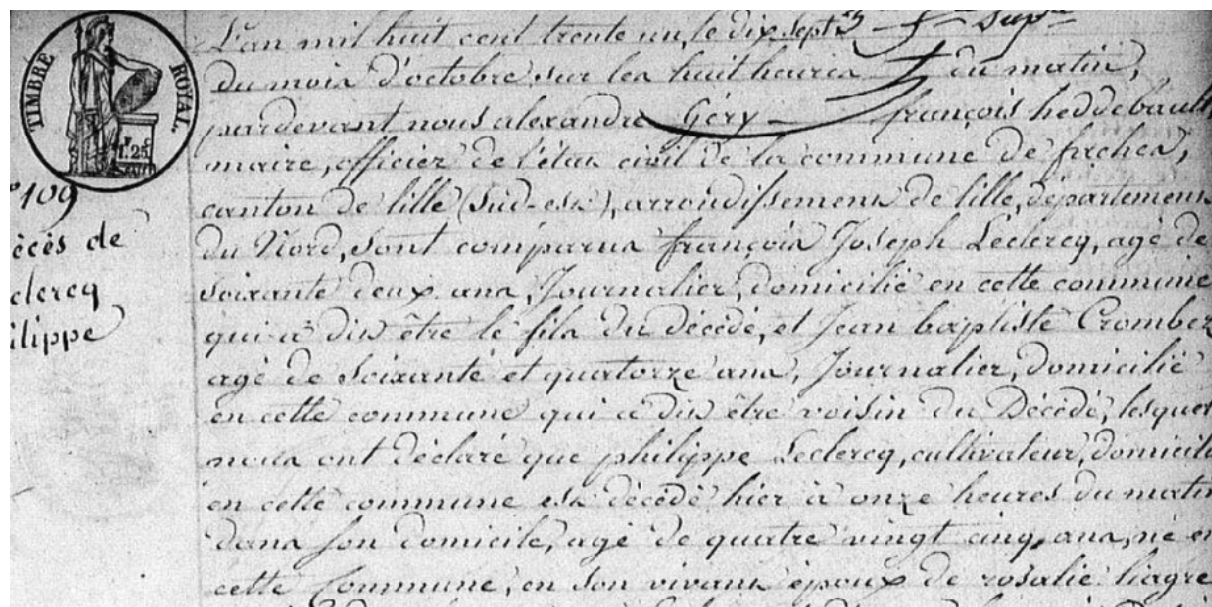 TIMBRE ROYAL.
109
écès de
clercq
ilippe
L'an mil huit cent trente un, le dix sept
du mois d'octobre sur les huit heures du matin,
pardevant nous alexandre Géry françois heddebault
maire, officier de l'état civil de la commune de faches,
canton de lille (Sud-est), arrondissement de lille, département
du Nord, Sont comparus françois Joseph Leclercq, agé de
soixante deux ans, Journalier, domicilié en cette commune
qui a dit être le fils du décédé, et Jean baptiste Crombez
agé de Soixante et quatorze ans, Journalier, domicilié
en cette commune qui a dit être voisin du Décédé, lesquel
nous ont déclaré que philippe Leclercq, cultivateur, domicili
en cette commune est décédé hier à onze heures du matin
dans son domicile, agé de quatre vingt cinq ans, né en
cette Commune, en son vivant époux de rosalie liagre